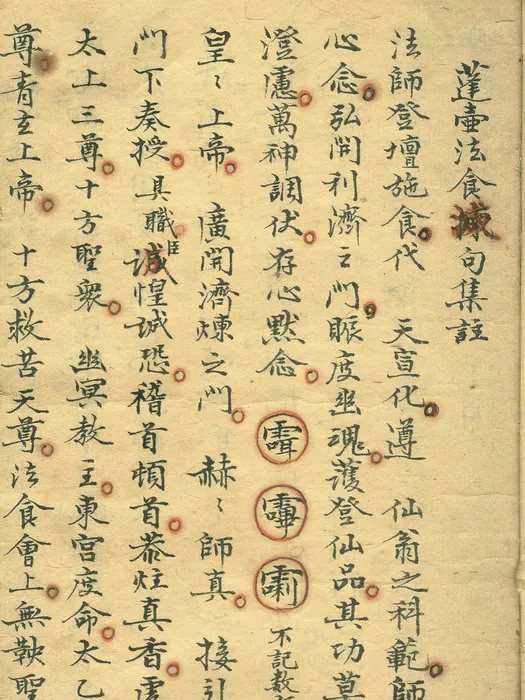 蓬壺法食煉句集註
法師登壇施食代 天宣化遵 仙翁之科範師
心念弘開利濟之門賑度幽魂䕶登仙品其功莫
澄慮萬神調伏存心默念 不記数
皇〻上帝 廣開濟煉之門 赫〻師真 接引
門下奏授 具職臣誠惶誠恐稽首頓首恭炷真香虔
太上三尊十方聖衆 幽冥教主東宫度命太乙
尊青玄上帝 十方救苦天尊法食會上無鞅聖